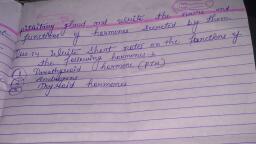 pituitary gland and write the name and
functions of hormones secreted by them
Ques 14 Write short notes on the functions of
the following hormones :
① Parathyroid hormone (PTH)
② Androgens
③ Thyroid hormones